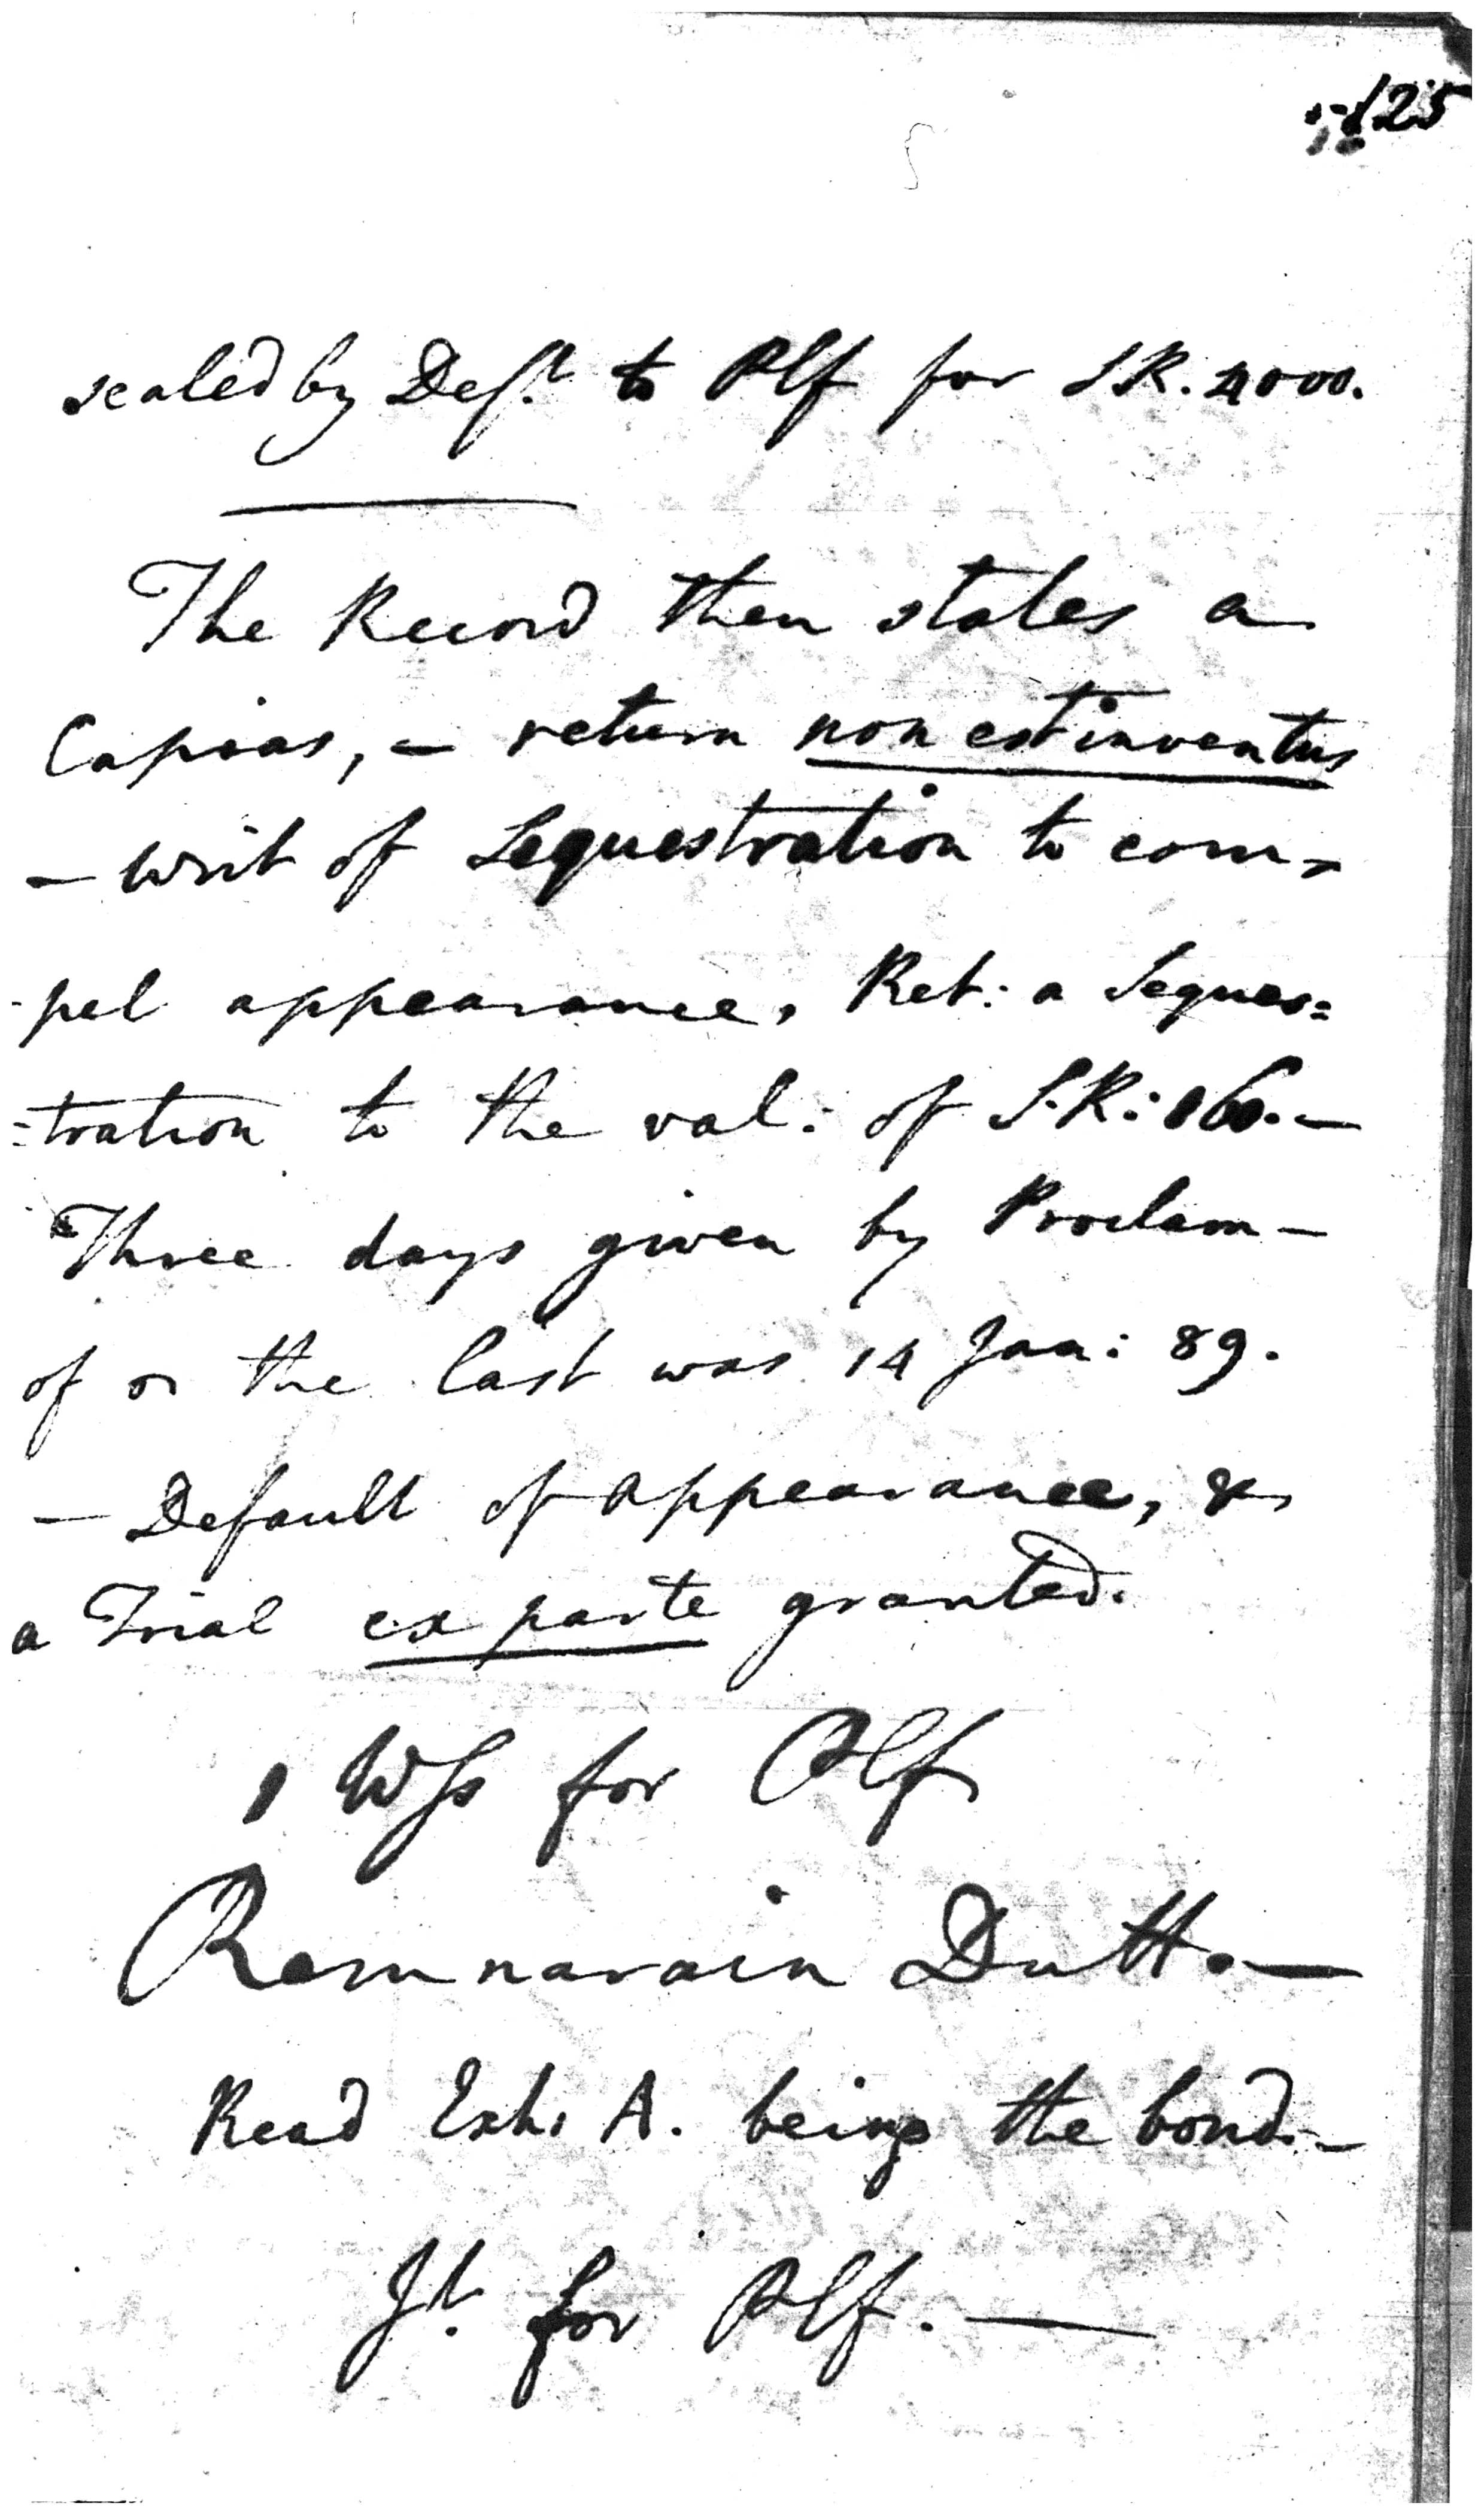 125
sealed by Deft. to Plf for S.R. 4000.
The Record then states a
Capias, – return non est inventus
– Writ of Sequestration to com-
-pel appearance, Ret: a Seques=
=tration to the val: of S.R: 160. –
Three days given by Proclam –
of the last was 14 Jan: 89.
– Default of appearance, &
a Trial ex parte granted.
1 Wss for Plf
Ramnarain Dutt. –
Read Exh. A. being the bond. –
Jt. for Plf. –